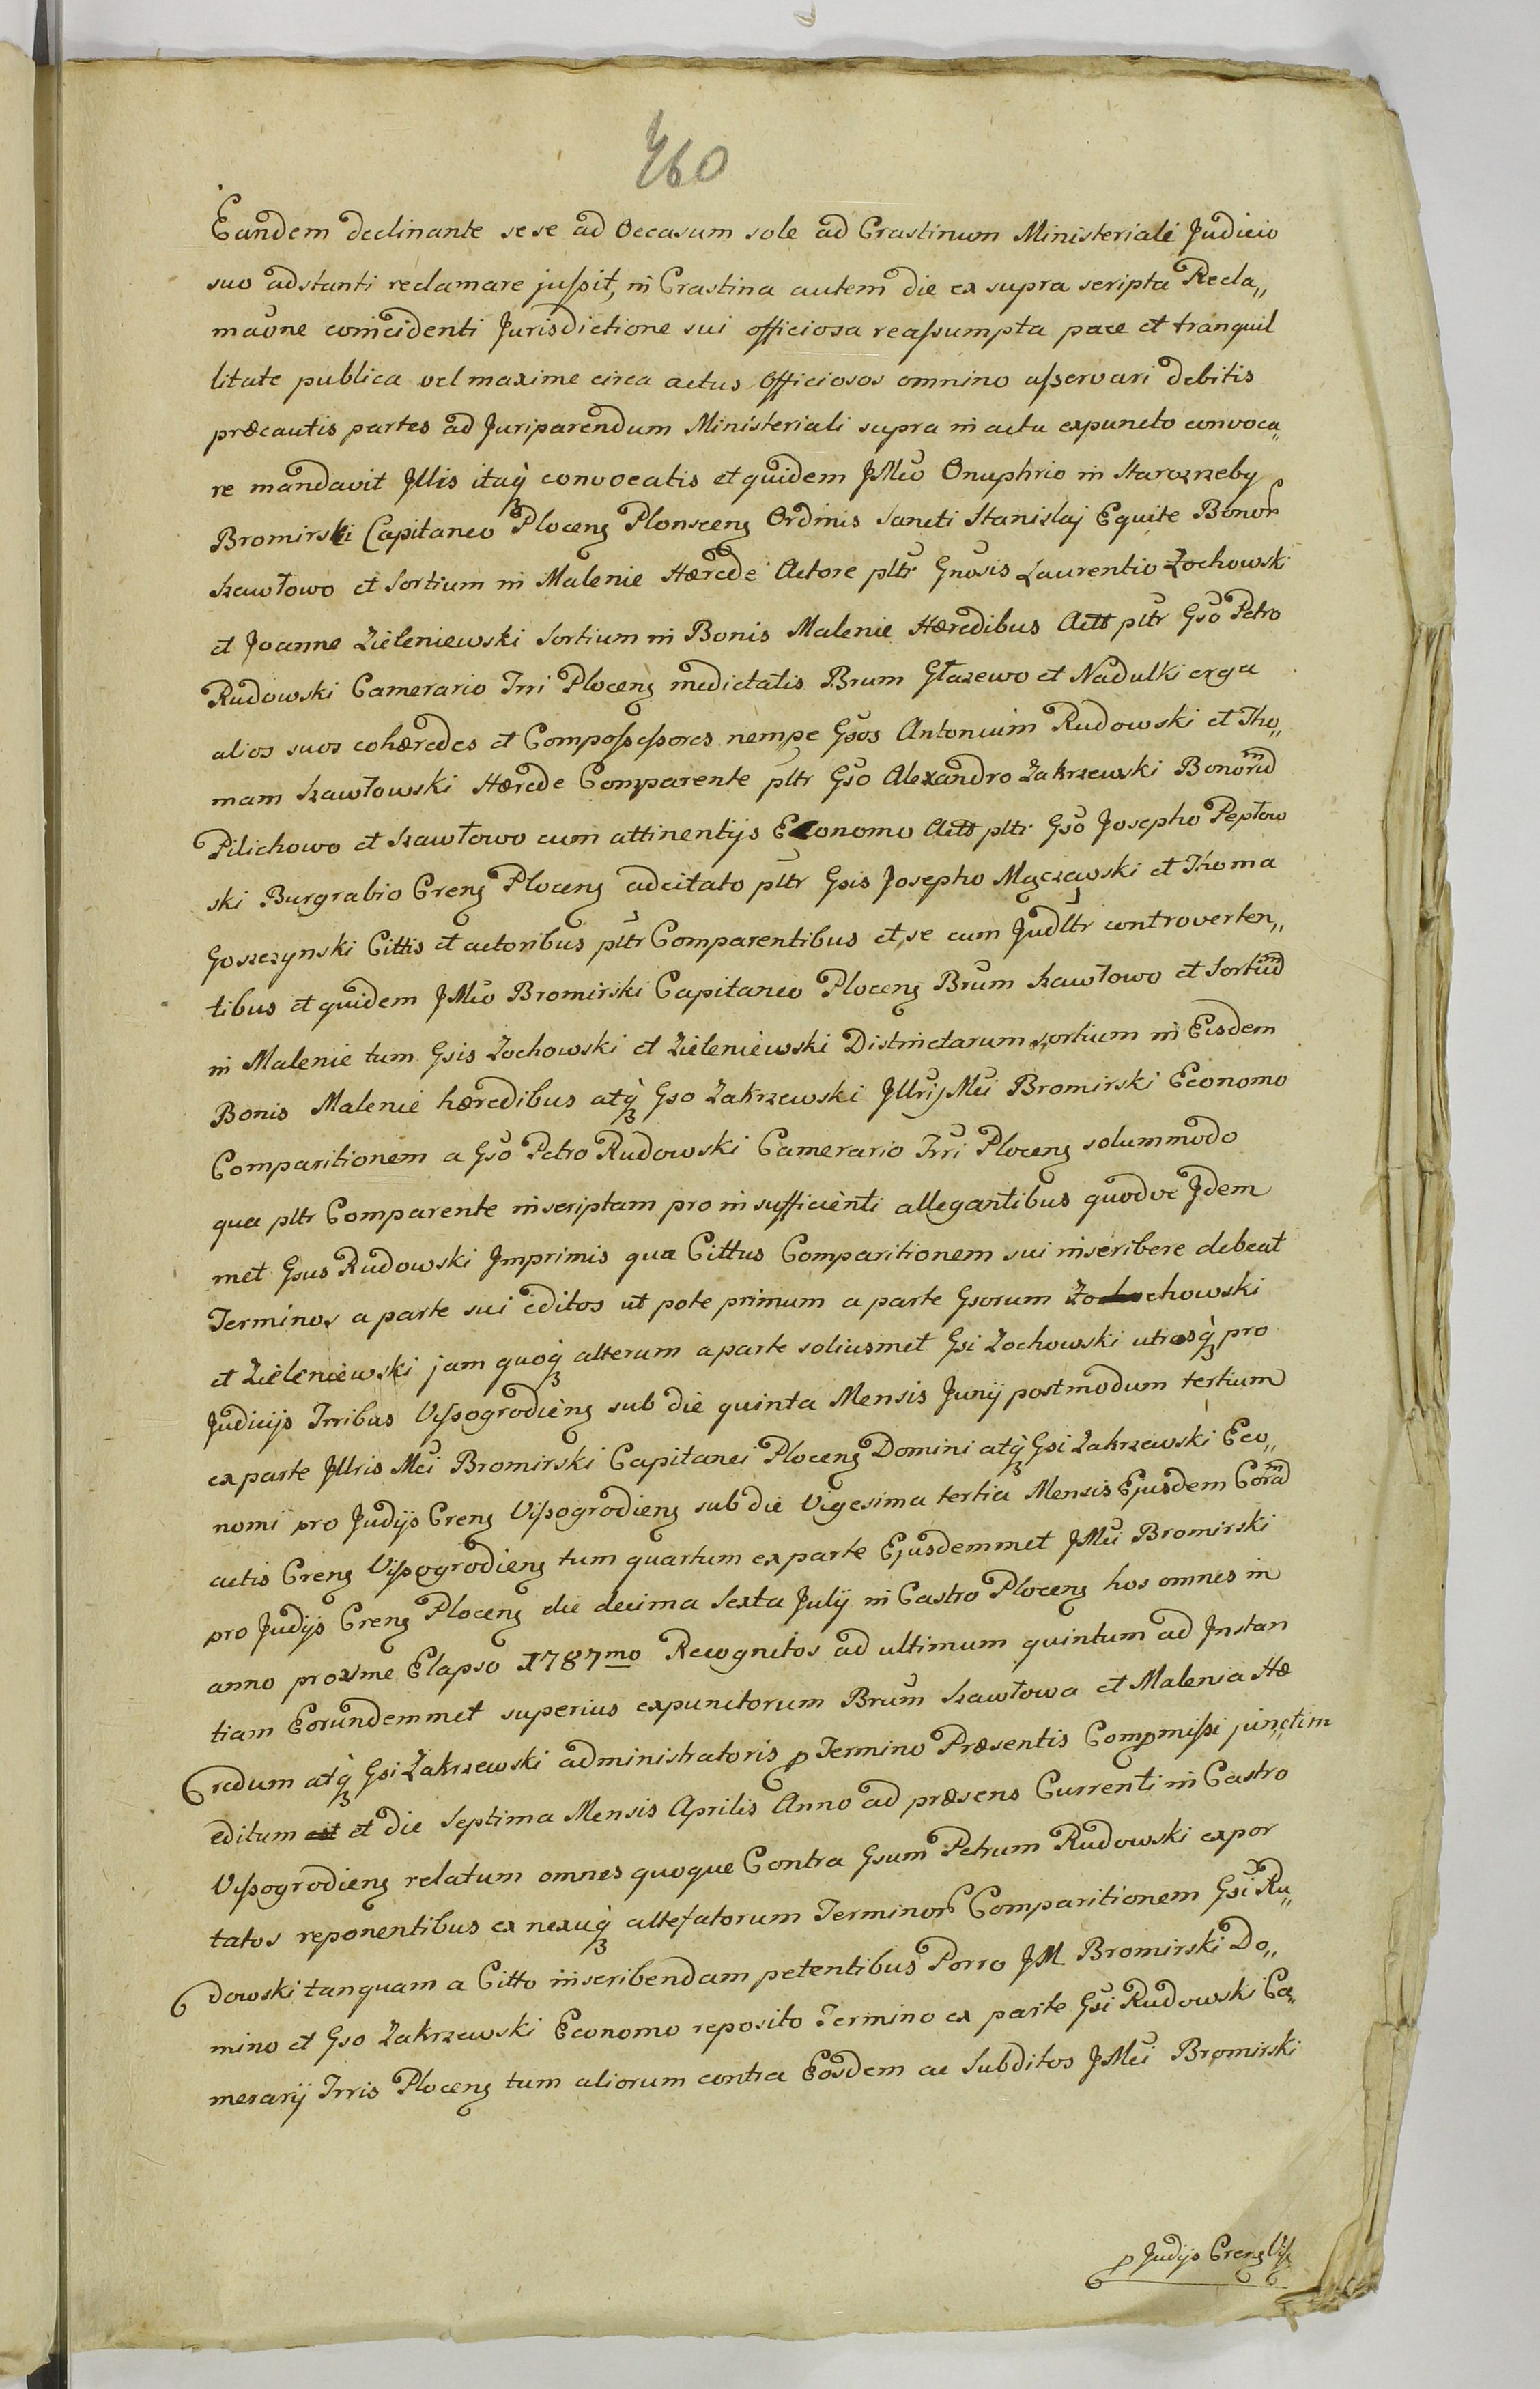 460
Eandem declinante sese ad Occasum sole ad Crastinum Ministeriali Judicio
suo adstanti reclamare jussit, in Crastina autem die ex supra scripta Recla„
maone coincidenti Jurisdictione sui officiosa reassumpta pace et tranquil
litate publica vel maxime circa actus Officiosos omnino asservari debitis
præcautis partes ad Juriparendum Ministeriali supra in actu expuncto convoca„
re mandavit Illis itaq convocatis et quidem JMco Onuphrio in Starozrzeby
Bromirski Capitaneo Plocen Plonscen Ordinis Sancti Stanislaj Equite Bonor
Szawłowo et Sortium in Malenie Hærede Actore pltr Gnosis Laurentio Zochowski
et Joanne Zieleniewski Sortium in Bonis Malenie Hæredibus Actt pltr Gso Petro
Rudowski Camerario Trri Plocen medietatis Brum Głazewo et Nadulki erga
alios suos cohæredes et Compossessores nempe Gsos Antonium Rudowski et Tho„
mam Szawłowski Hærede Comparente pltr Gso Alexandro Zakrzewski Bonorum
Pilichowo et Szawłowo cum attinentijs Economo Actt pltr Gso Josepho Pepłow
ski Burgrabio Cren Plocen adcitato pltr Gsis Josepho Mączewski et Thoma
Goszczynski Cittis et actoribus pltr Comparentibus et se cum Judltr controverten„
tibus et quidem JMco Bromirski Capitaneo Plocen Brum Szawłowo et Sortium
in Malenie tum Gsis Zochowski et Zieleniewski Distinctarum sortium in Eisdem
Bonis Malenie hæredibus atq Gso Zakrzewski Jllrij Mci Bromirski Economo
Comparitionem a Gso Petro Rudowski Camerario Trri Plocen solummodo
qua pltr Comparente inscriptam pro insufficienti allegantibus quodve Idem
met Gsus Rudowski Imprimis qua Cittus Comparitionem sui inscribere debeat
Terminos a parte sui editos ut pote primum a parte Gsorum Zochowski
et Zieleniewski jam quoq alterum a parte soliusmet Gsi Zochowski utrosq pro
Judicijs Trribus Vissogrodien sub die quinta Mensis Junij postmodum tertium
ex parte Jllris Mci Bromirski Capitanei Plocen Domini atq Gsi Zakrzewski Eco„
nomi pro Judijs Cren Vissogrodien sub die Vigesima tertia Mensis Ejusdem Coram
actis Cren Vissogrodien tum quartum ex parte Ejusdemmet JMci Bromirski
pro Judijs Cren Plocen die decima Sexta Julij in Castro Plocen hos omnes in
anno proxime Elapso 1787mo Recognitos ad ultimum quintum ad Instan
tiam Eorundemmet superius expunctorum Brum Szawłowa et Malenia Hæ
redum atq Gsi Zakrzewski administratoris p Termino Præsentis Compmissi junctim
editum est et die Septima Mensis Aprilis Anno ad præsens Currenti in Castro
Vissogrodien relatum omnes quoque Contra Gsum Petrum Rudowski expor
tatos reponentibus ex nexuq attefatorum Terminor Comparitionem Gsi Ru„
dowski tanquam a Citto inscribendam petentibus Porro JM Bromirski Do„
mino et Gso Zakrzewski Economo reposito Termino ex parte Gsi Rudowski Ca„
merarij Trris Plocen tum aliorum contra Eosdem ac Subditos JMci Bromirski
p Judijs Cren Viss